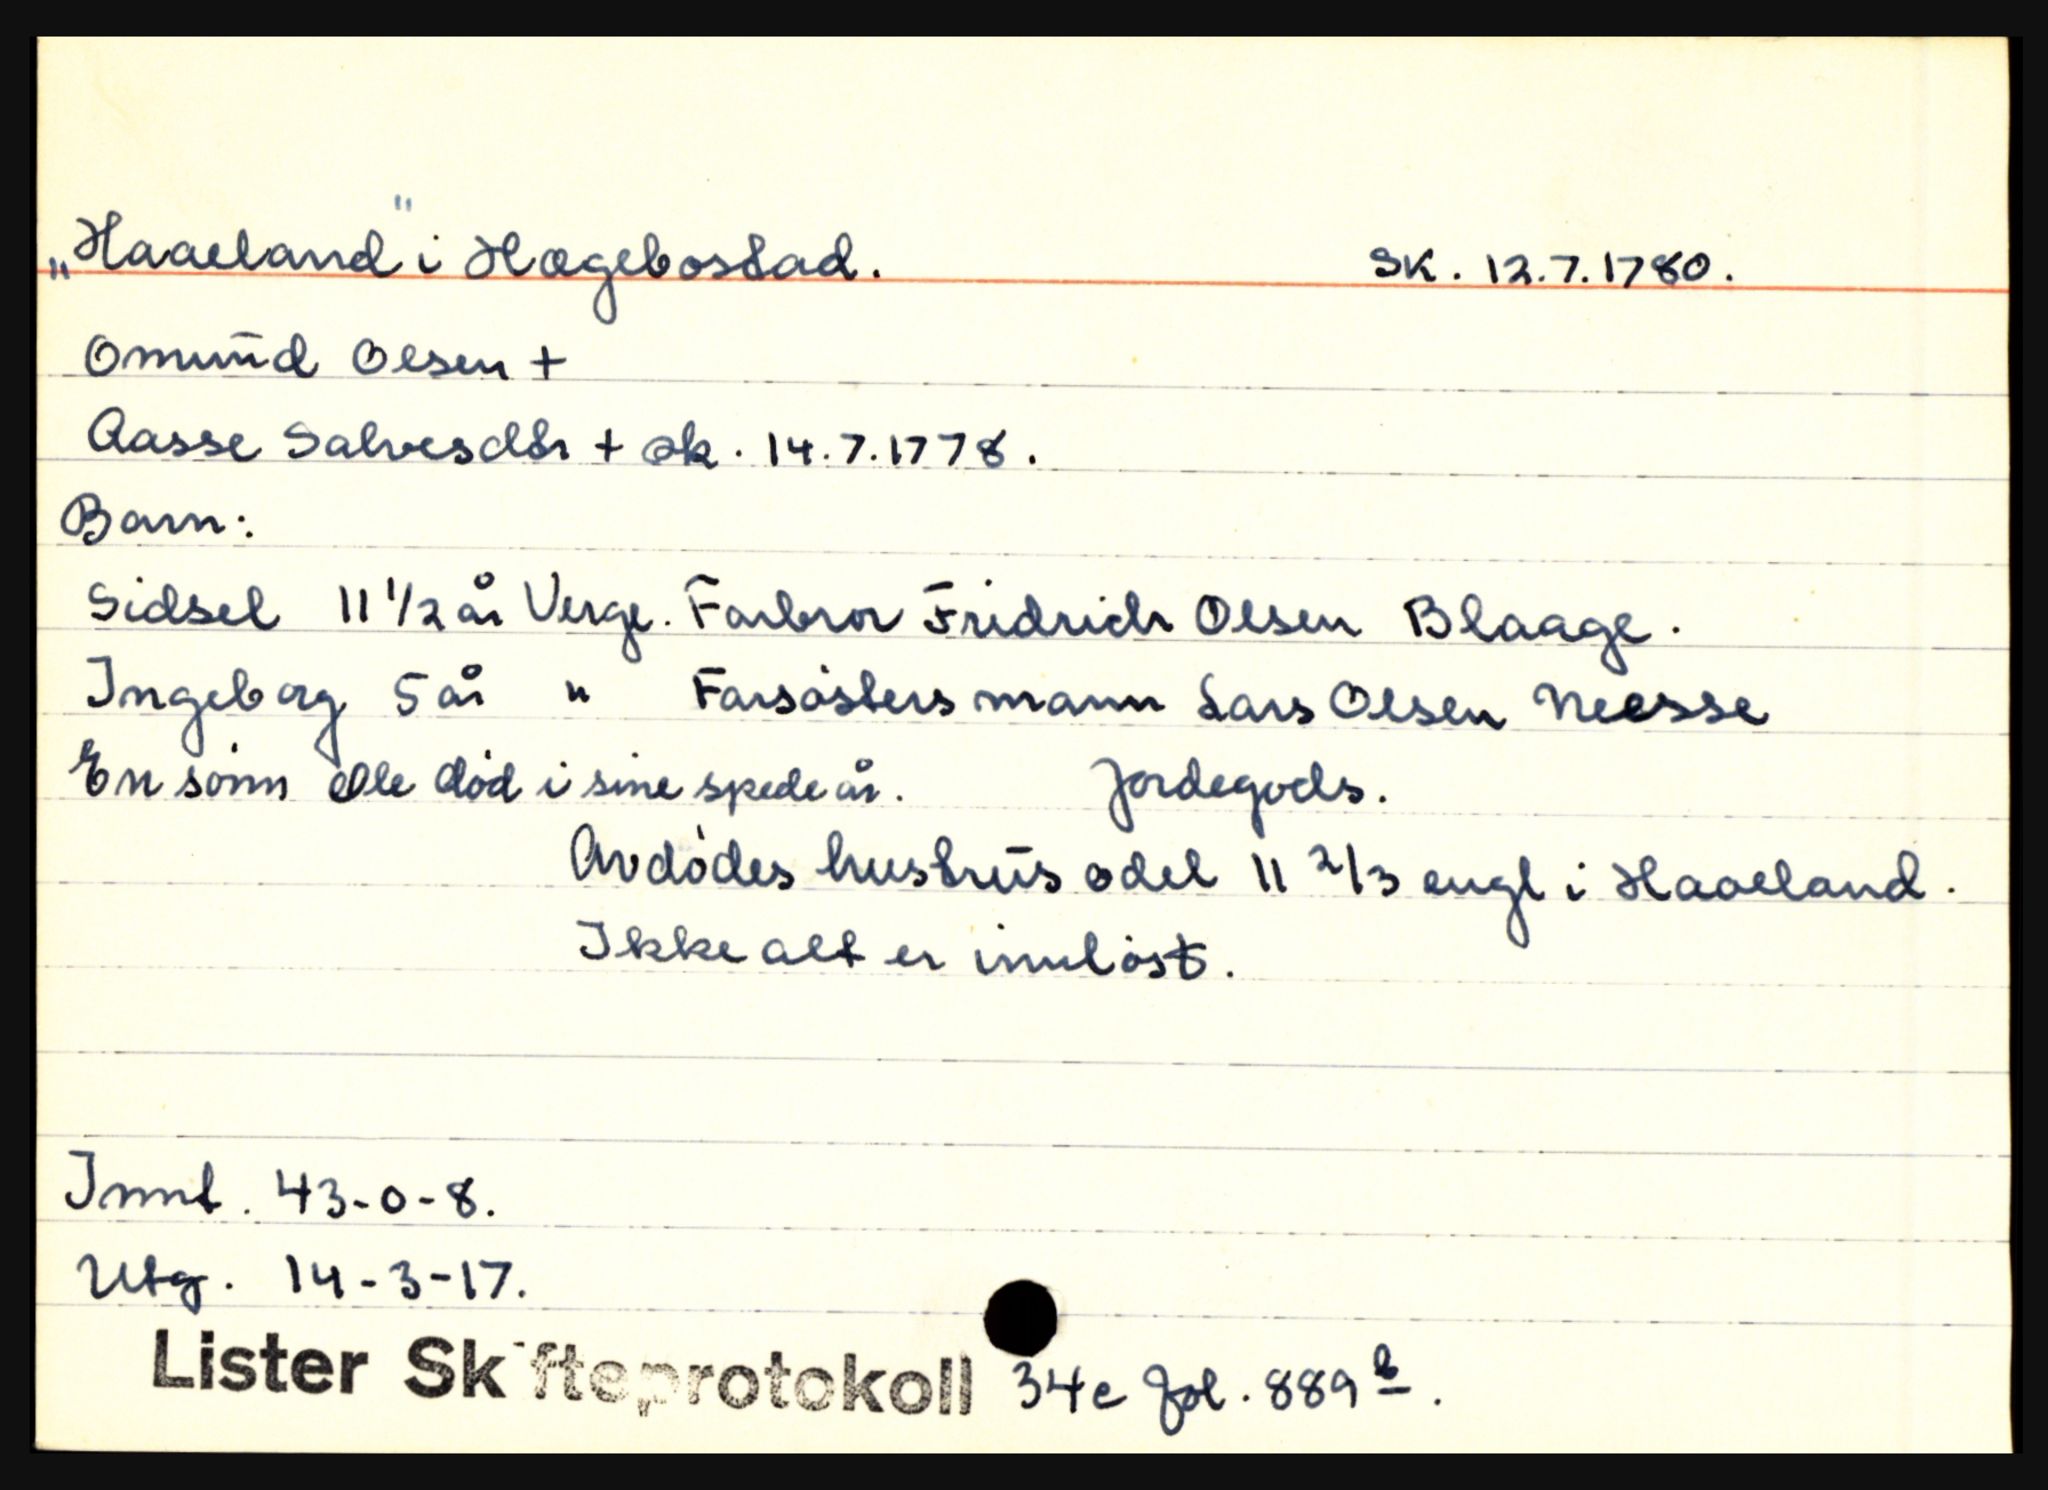 „Haaeland" i Hægebostad. SK. 12.7.1780.
Omund Olsen +
Aasse Salvesdtr + sk. 14.7.1778.
Barn:
Sidsel 11 1/2 år Verge. Farbror Fridrich Olsen Blaage.
Ingeborg 5 år " Farsøsters mann Lars Olsen Neesse
En sønn Ole død i sine spede år. Jordegods.
Avdødes hustrus odel 11 2/3 engl i Haaeland.
Ikke alt er innløst.
Innt. 43-0-8.
Utg. 14-3-17.
Lister Skifteprotokoll 34c fol. 889 b.